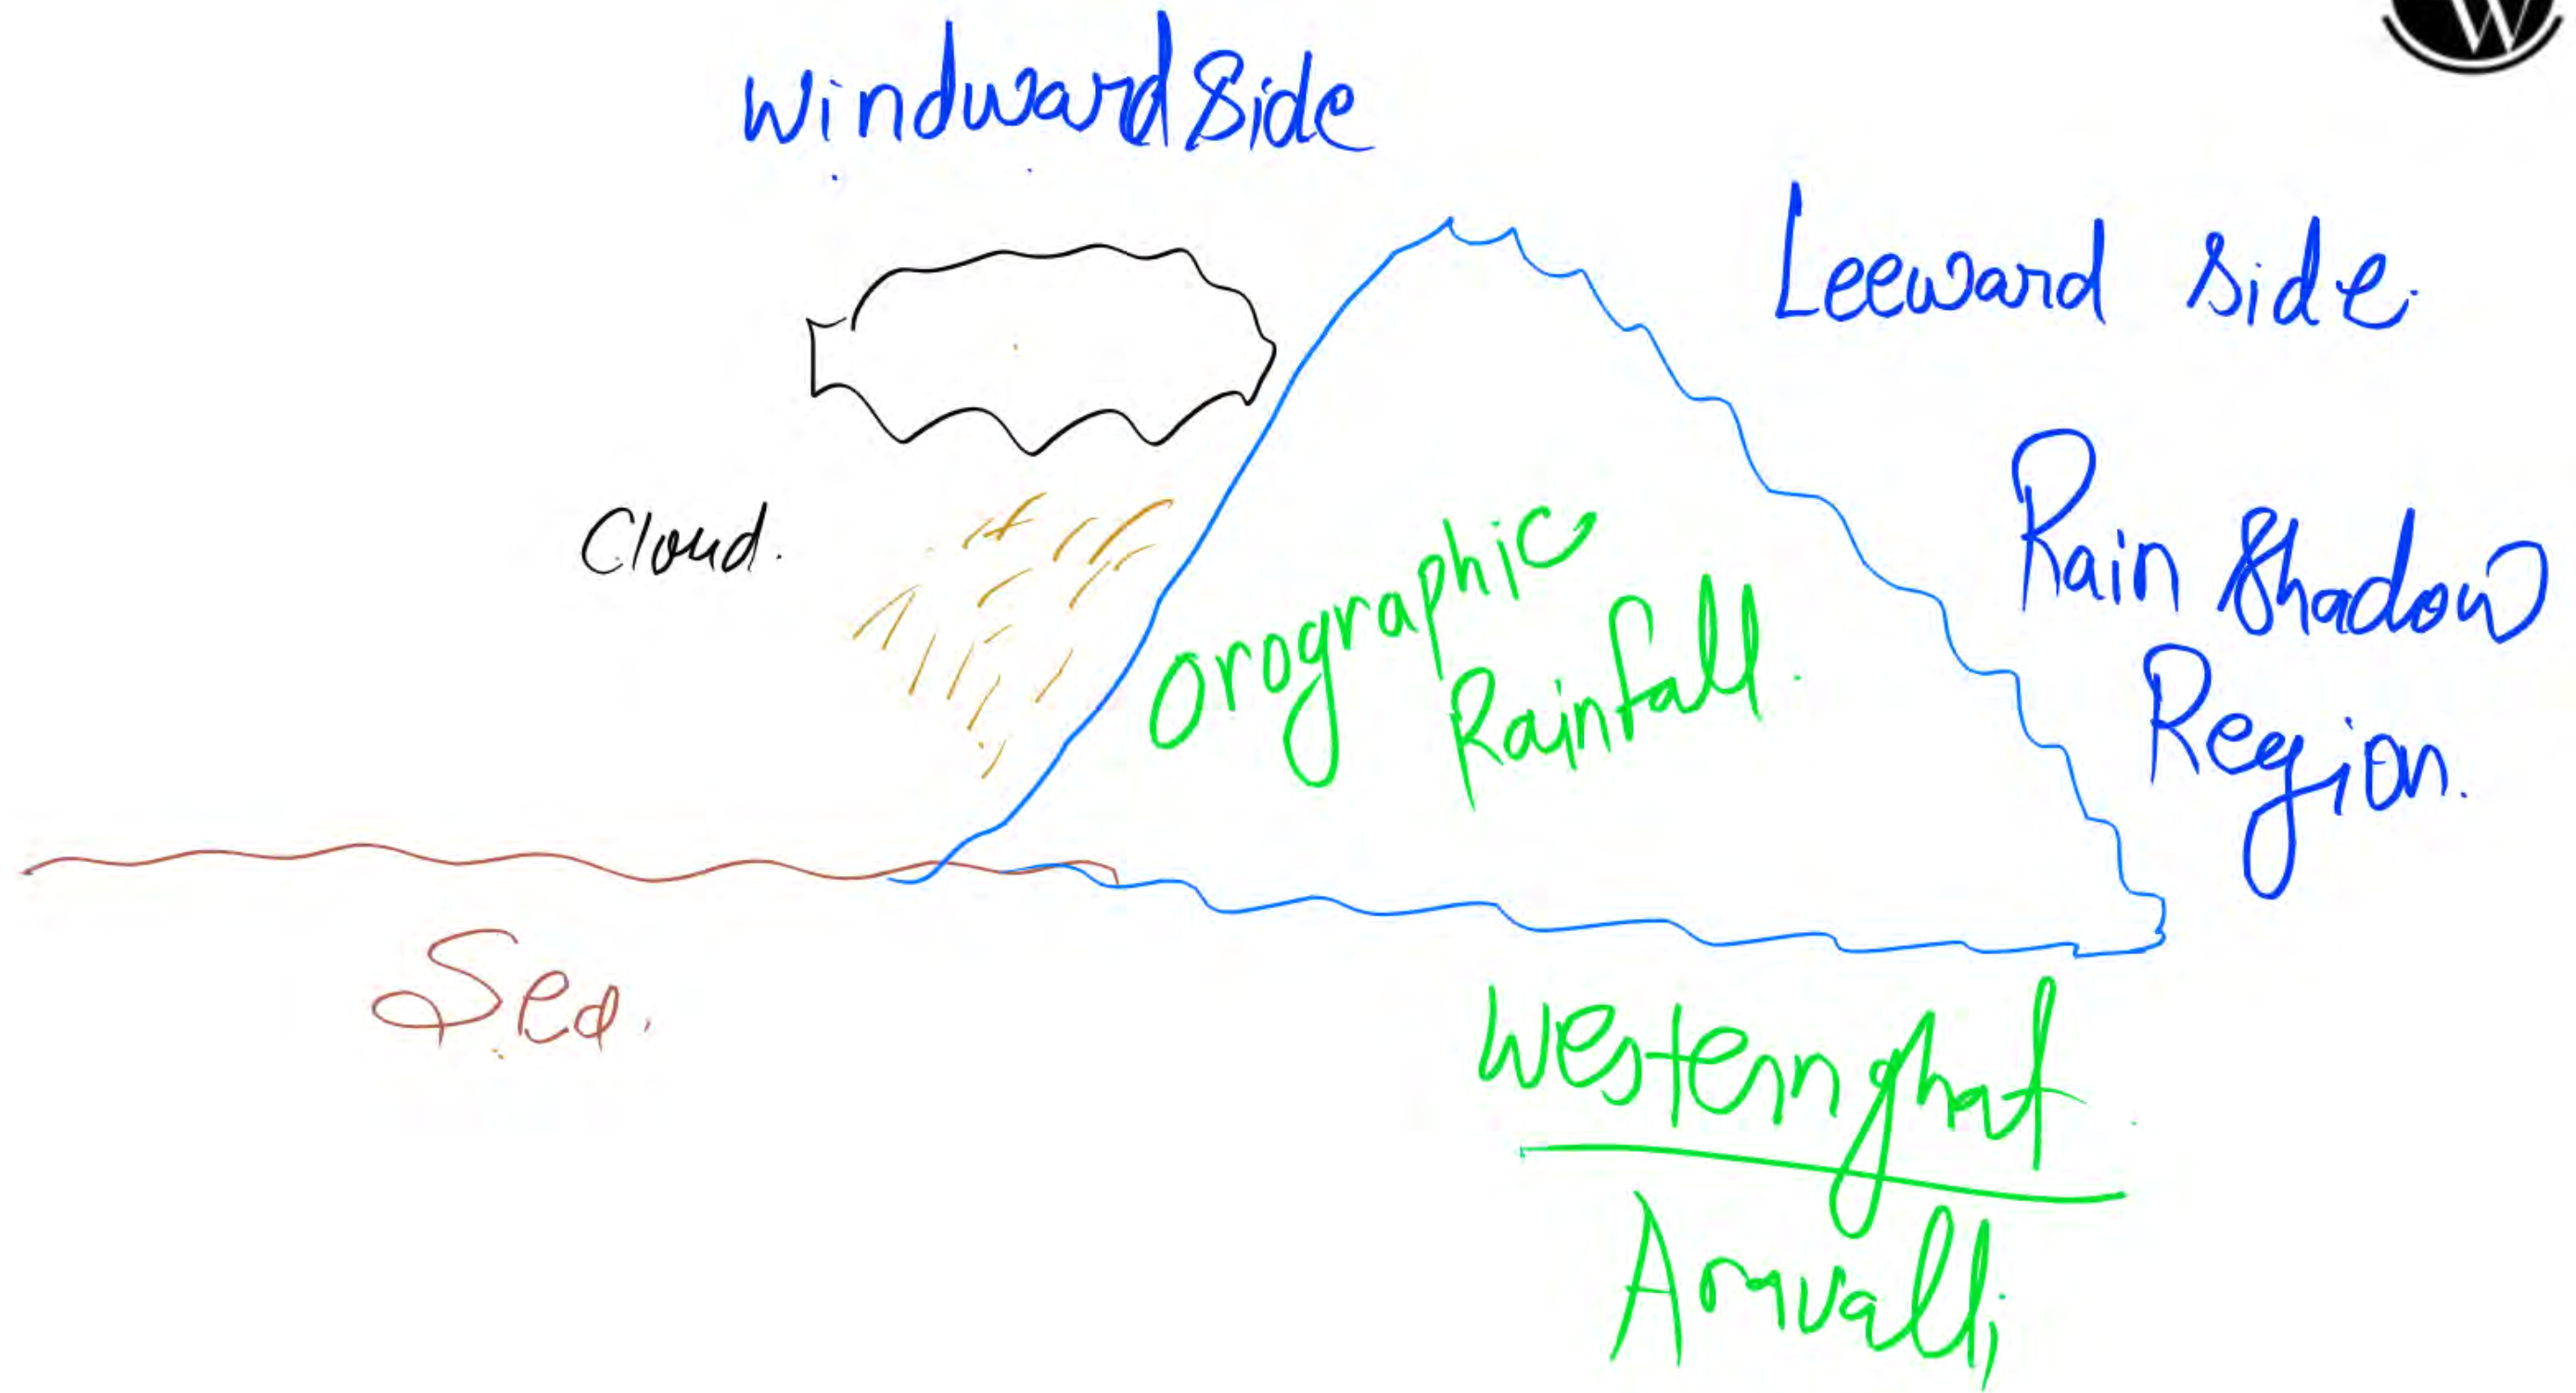 W
Windward Side
Leeward Side.
Cloud.
Rain Shadow
Region.
Orographic
Rainfall.
Sea.
Western ghat
Aravalli